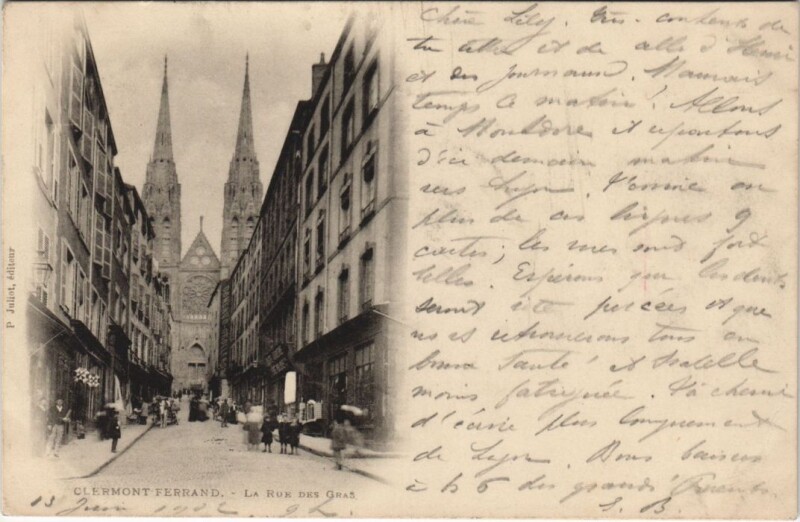 Chère Lily. Très contente de
ta lettre et de celle d'Henri
et des journaux. Mauvais
temps ce matin! Allons
à Montdore et repartons
d'ici demain matin
vers Lyon. T'envoie en
plus de ces lignes 9
cartes; les vues sont fort
belles. Espérons que les dents
seront vite percées et que
nous retrouverons tous en
bonne santé! et Isabelle
moins fatiguée. Tâcherai
d'écrire plus longuement
de Lyon. Bons baisers
à ts 6 des grands Parents.
S. B.
P Juliot, éditeur
CLERMONT FERRAND. - LA RUE DES GRAS
13 Juin 1902